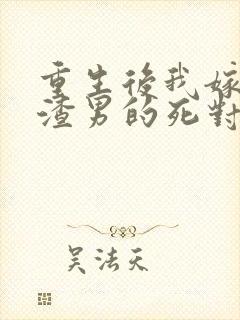 重生後我嫁
渣男的死對
吴法天